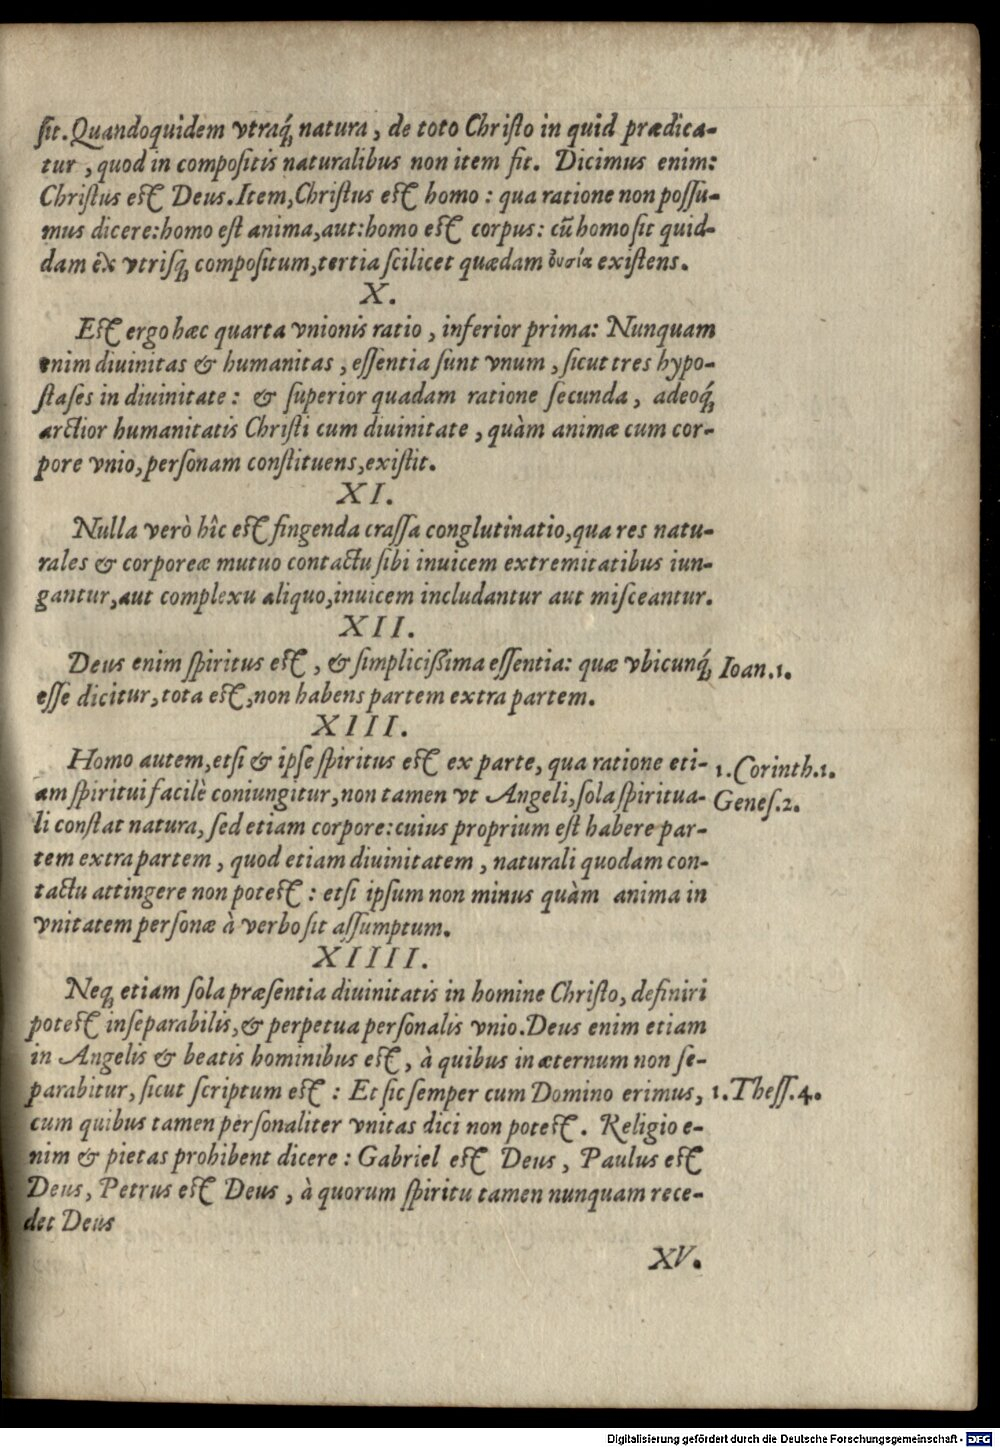 ſit. Quandoquidem vtraq́; natura, de toto Chriſto in quid prædica-
tur, quod in compoſitis naturalibus non item fit. Dicimus enim:
Chriſtus eſt Deus. Item, Chriſtus eſt homo: qua ratione non poſſu-
mus dicere: homo eſt anima, aut: homo eſt corpus: cū homo ſit quid-
dam èx vtriſq; compoſitum, tertia ſcilicet quædam ȣ̓σία exiſtens.
X.
Eſt ergo hæc quarta vnionis ratio, inferior prima: Nunquam
enim diuinitas & humanitas, eſſentia ſunt vnum, ſicut tres hypo-
ſtaſes in diuinitate: & ſuperior quadam ratione ſecunda, adeoq́;
arctior humanitatis Chriſti cum diuinitate, quàm animæ cum cor-
pore vnio, perſonam conſtituens, exiſtit.
XI.
Nulla verò hîc eſt fingenda craſſa conglutinatio, qua res natu-
rales & corporeæ mutuo contactu ſibi inuicem extremitatibus iun-
gantur, aut complexu aliquo, inuicem includantur aut miſceantur.
XII.
Deus enim ſpiritus eſt, & ſimpliciſsima eſſentia: quæ vbicunq́; Ioan.1.
eſſe dicitur, tota eſt, non habens partem extra partem.
XIII.
Homo autem, etſi & ipſe ſpiritus eſt ex parte, qua ratione eti- 1.Corinth.1.
am ſpiritui facilè coniungitur, non tamen vt Angeli, ſola ſpiritua- Geneſ.2.
li conſtat natura, ſed etiam corpore: cuius proprium eſt habere par-
tem extra partem, quod etiam diuinitatem, naturali quodam con-
tactu attingere non poteſt: etſi ipſum non minus quàm anima in
vnitatem perſonæ à verbo ſit aſſumptum.
XIIII.
Neq; etiam ſola præſentia diuinitatis in homine Chriſto, definiri
poteſt inſeparabilis, & perpetua perſonalis vnio. Deus enim etiam
in Angelis & beatis hominibus eſt, à quibus in æternum non ſe-
parabitur, ſicut ſcriptum eſt: Et ſic ſemper cum Domino erimus, 1.Theſſ.4.
cum quibus tamen perſonaliter vnitas dici non poteſt. Religio e-
nim & pietas prohibent dicere: Gabriel eſt Deus, Paulus eſt
Deus, Petrus eſt Deus, à quorum ſpiritu tamen nunquam rece-
det Deus
XV.
Digitalisierung gefördert durch die Deutsche Forschungsgemeinschaft - DFG